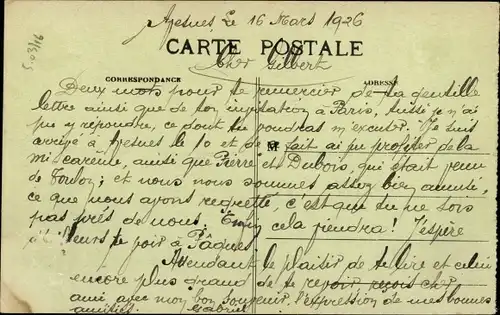 Avesnes Le 16 Mars 1926
CARTE POSTALE
Cher Gilbert
CORRESPONDANCE
ADRESSE
Deux mots pour te remercier de ta gentille
lettre ainsi que de ton invitation à Paris, aussi je n'ai
pu y répondre, ce dont tu voudras m'excuser. Je suis
arrivé à Avesnes le 10 et de fait ai pu profiter de la
M
mi-carême, ainsi que Pierre et Dubois, qui était venu
de Toulon; et nous nous sommes assez bien amusé,
ce que nous avons regretté, c'est que tu ne sois
pas près de nous. Enfin cela viendra! J'espère
d'ailleurs te voir à Pâques
Attendant le plaisir de te lire et celui
encore plus grand de te revoir reçois cher
ami avec mon bon souvenir l'expression de mes bonnes
amitiés. Gabriel